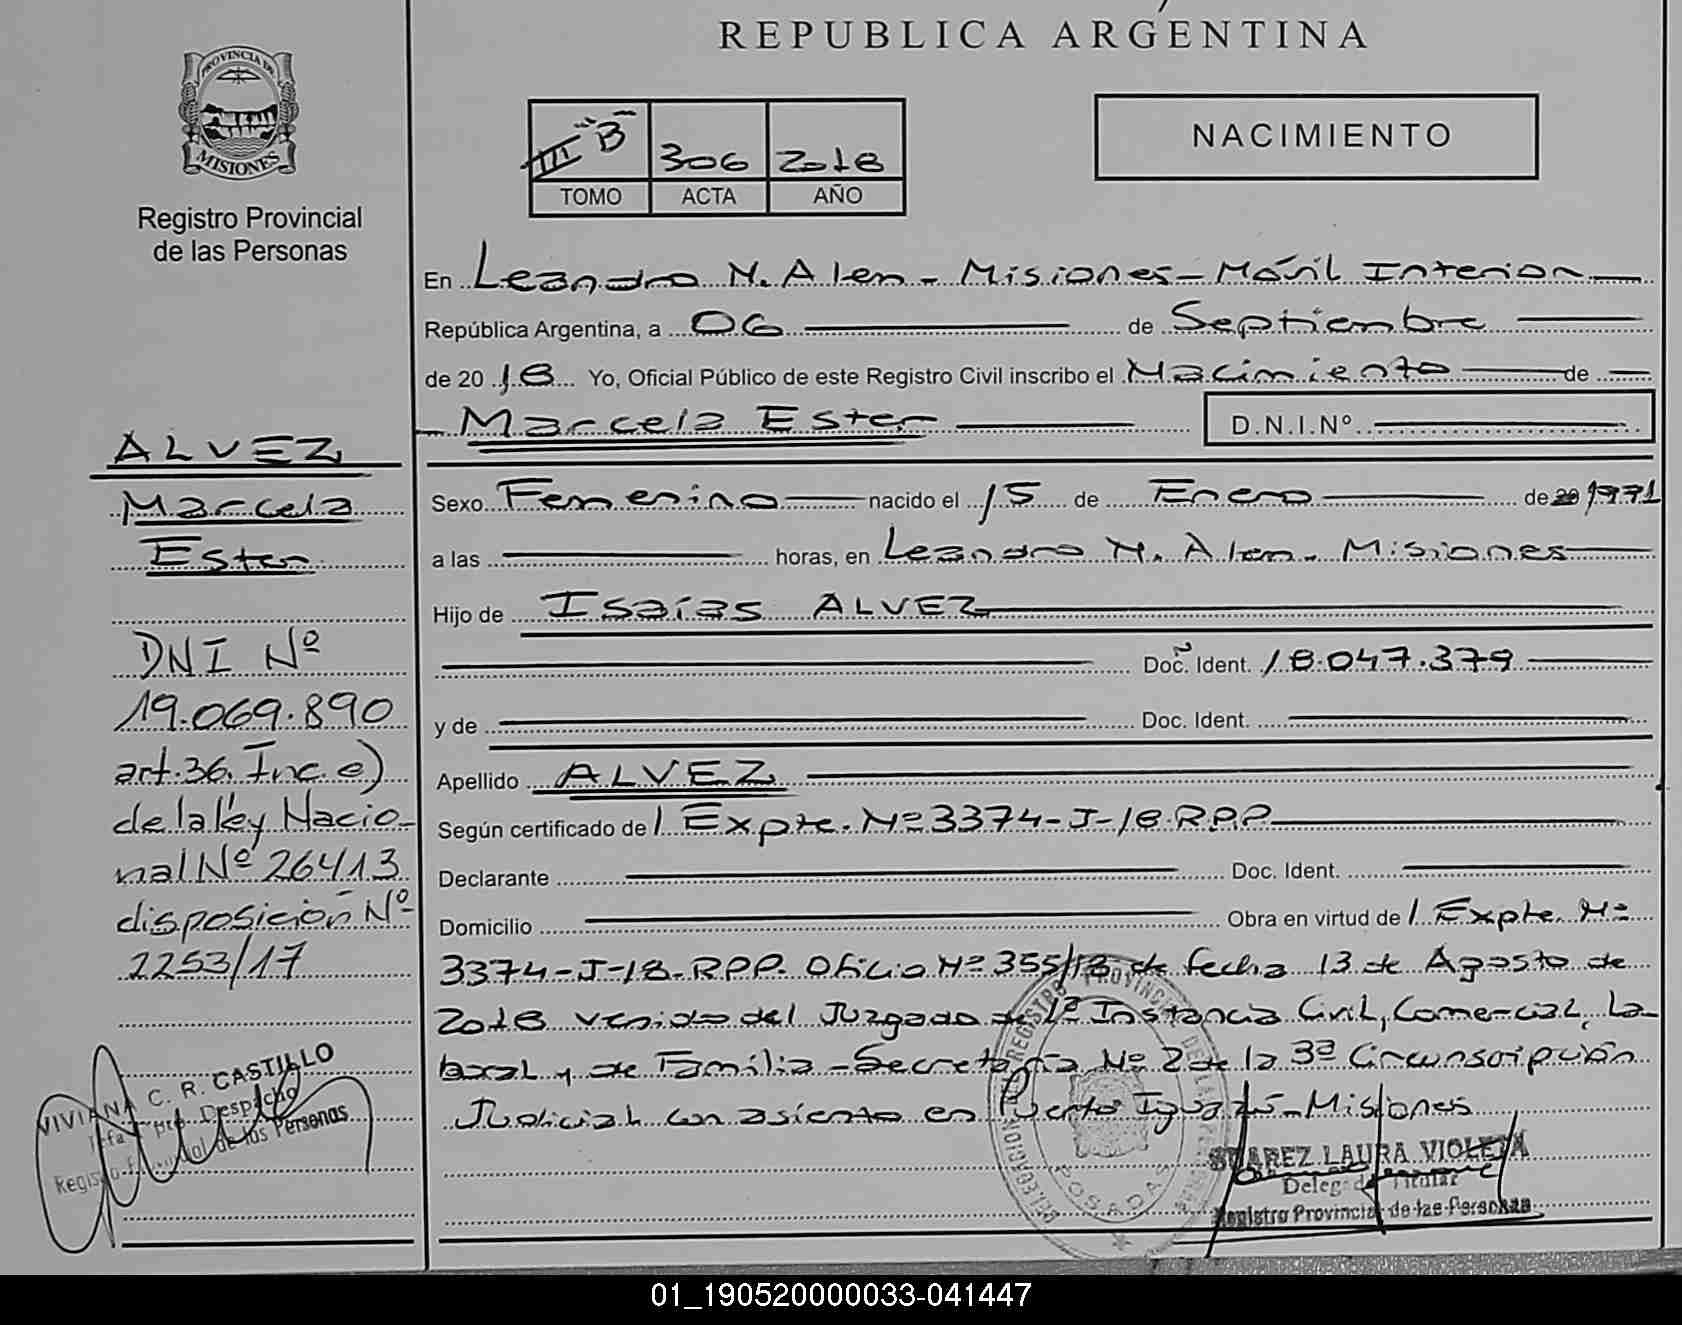 REPUBLICA ARGENTINA
PROVINCIA DE
MISIONES
Registro Provincial
de las Personas
III "B" 306 2018
TOMO ACTA AÑO
NACIMIENTO
En Leandro N. Alem - Misiones - Móvil Interior
República Argentina, a 06 de Septiembre
de 20 18 Yo, Oficial Público de este Registro Civil inscribo el Nacimiento de
Marcela Ester D.N.I.Nº
Sexo Femenino nacido el 15 de Enero de 20 1971
a las horas, en Leandro N. Alem - Misiones
Hijo de Isaías ALVEZ
Doc. Ident. 18.047.379
y de Doc. Ident.
Apellido ALVEZ
Según certificado de Expte. Nº 3374-J-18-RPP
Declarante Doc. Ident.
Domicilio Obra en virtud de Expte. Nº
3374-J-18-RPP. Oficio Nº 355/18 de fecha 13 de Agosto de
2018 venido del Juzgado de 1ª Instancia Civil, Comercial, La-
boral y de Familia - Secretaría Nº 2 de la 3ª Circunscripción
Judicial con asiento en Puerto Iguazú - Misiones
ALVEZ
Marcela
Ester
DNI Nº
19.069.890
art. 36. Inc e)
de la ley Nacio-
nal Nº 26413
disposición Nº
2253/17
VIVIANA C. R. CASTILLO
Despacho
de las Personas
DELEGACION REGISTRO PROVINCIAL DE LAS PERSONAS
POSADAS
SUAREZ LAURA VIOLETA
Delegada Titular
Registro Provincial de las Personas
01_190520000033-041447